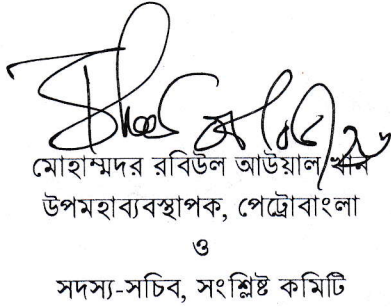 মোহাম্মদর রবিউল আউয়াল খান
উপমহাব্যবস্থাপক, পেট্রোবাংলা
ও
সদস্য-সচিব, সংশ্লিষ্ট কমিটি